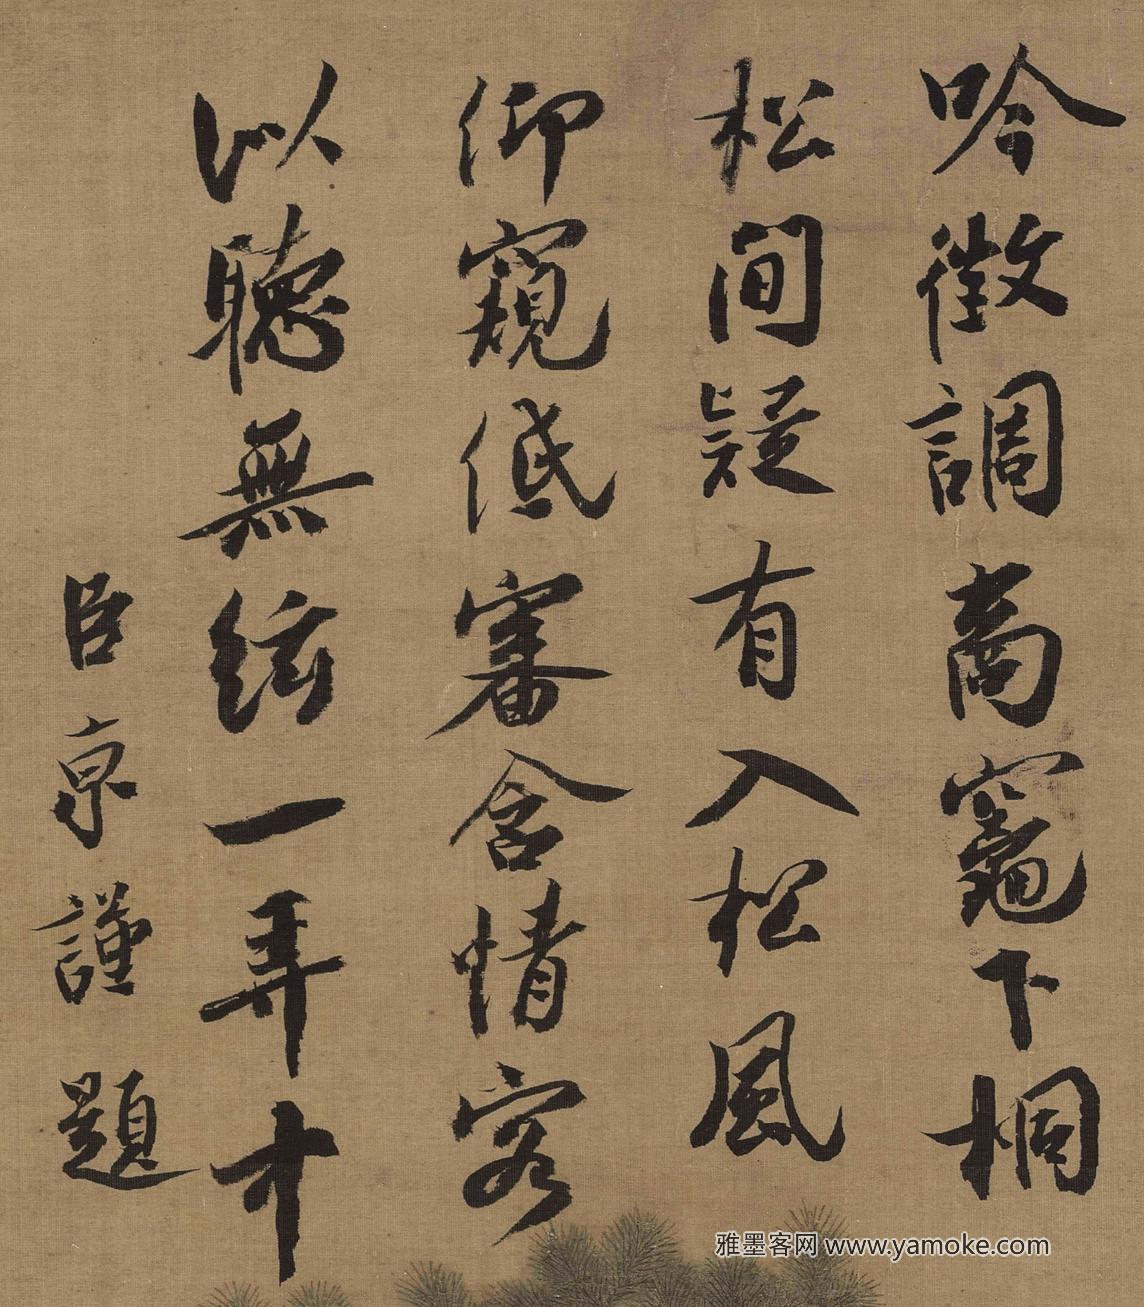 吟徵調商竈下桐
松間疑有入松風
仰窺低審含情客
以聽無絃一弄中
臣京謹題
雅墨客网 www.yamoke.com